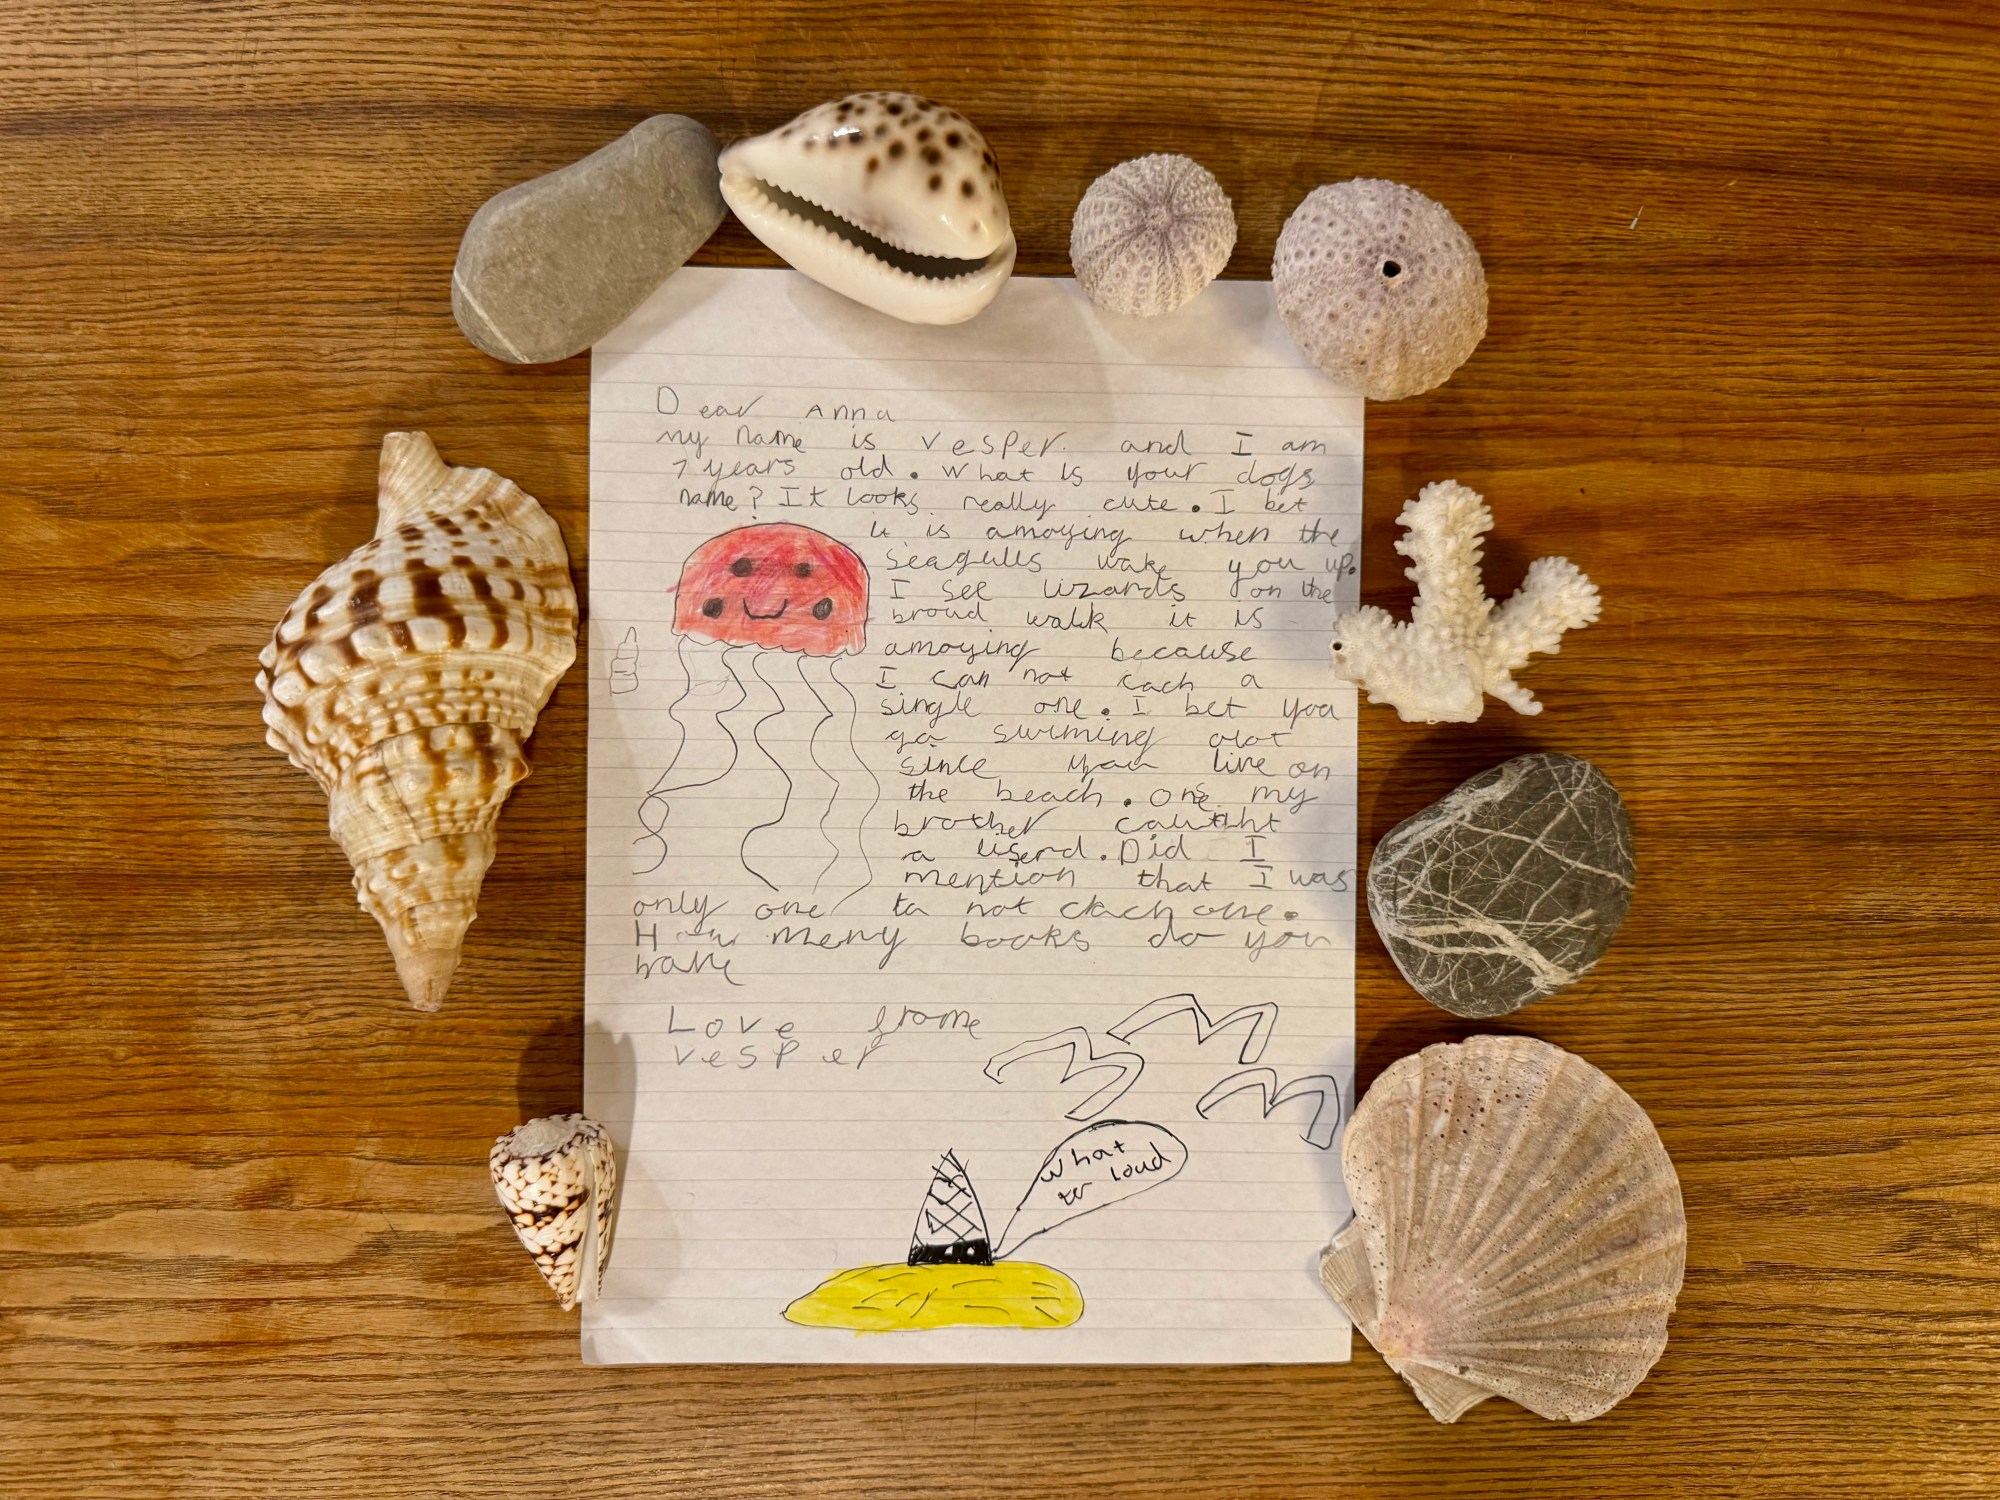 Dear Anna
my name is vesper. and I am
7 years old. What is your dogs
name? It looks really cute. I bet
it is amoying when the
seagulls wake you up.
I see lizards on the
broud walk it is
amoying because
I can not cach a
single one. I bet you
go swiming alot
since you live on
the beach. one my
brother caught
a liserd. Did I
mention that I was
only one to not cach one.
How meny books do you
have
Love frome
vesper
what
ter loud